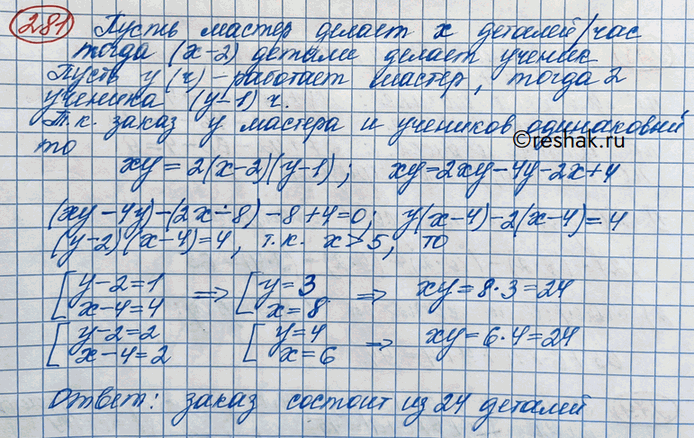 281 Пусть мастер делает x деталей/час
тогда (x-2) детали делает ученик
Пусть y (ч) - работает мастер, тогда 2
ученика (y-1) ч.
Т.к. заказ у мастера и учеников одинаковый
©reshak.ru
то
xy = 2(x-2)(y-1); xy = 2xy-4y-2x+4
(xy-4y)-(2x-8)-8+4=0; y(x-4)-2(x-4)=4
(y-2)(x-4)=4, т.к. x>5, то
[{y-2=1 => [{y=3 => xy=8·3=24
x-4=4 x=8
[{y-2=2 [{y=4 → xy=6·4=24
x-4=2 x=6
Ответ: заказ состоит из 24 деталей